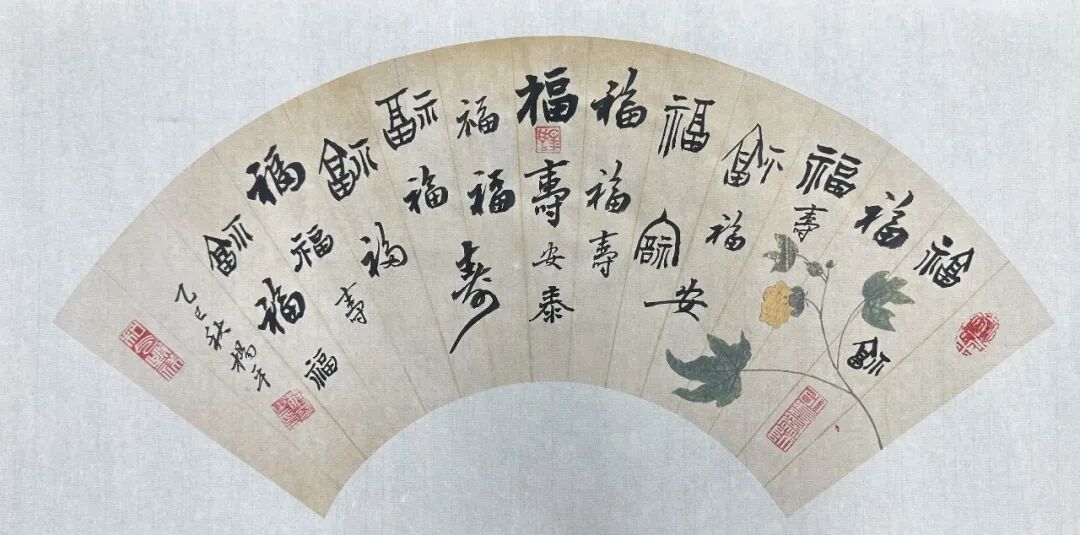 福
福福
福壽
福福
福福安
福福壽
福壽安泰
福福寿
福福
福福
福福壽
福福福
乙巳秋楊平